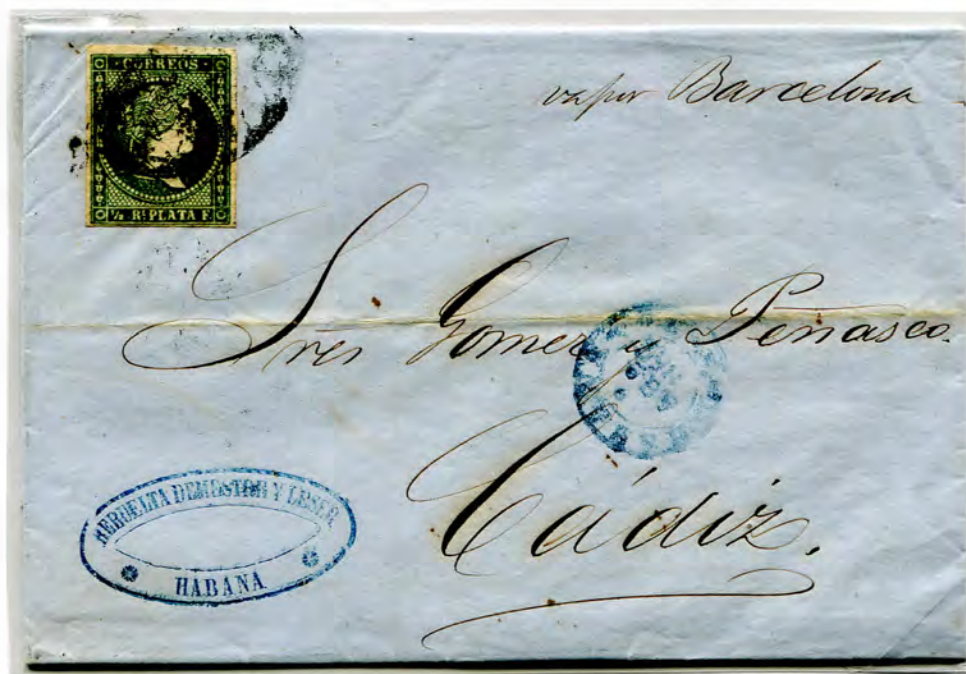 CORREOS
½ Rl PLATA F.
vapor Barcelona
Sres Gomez y Peñasco.
Cádiz.
Y LESER
HABANA